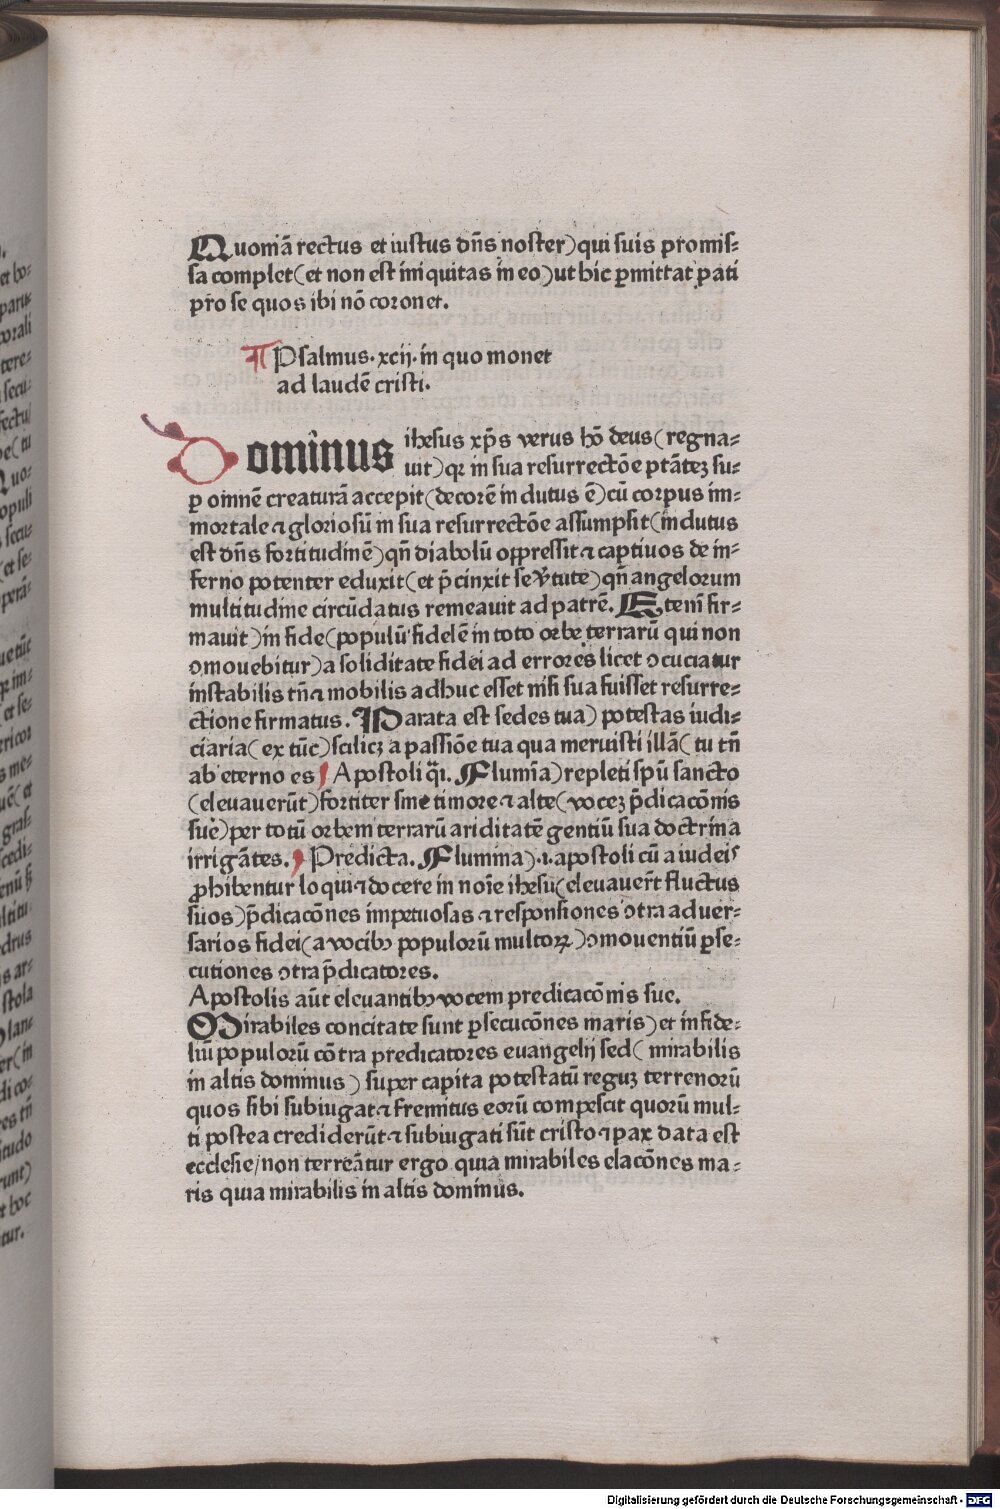 Quoniā rectus et iustus dn̄s noster) qui suis promis⸗
sa complet( et non est iniquitas in eo) ut hic ꝑmittat pati
pro se quos ibi nō coronet.
Psalmus. xcij. in quo monet
ad laudē cristi.
Dominus ihesus xp̄s verus hō deus( regna⸗
uit) qꝛ in sua resurrectōe ptātez su⸗
ꝑ omnē creaturā accepit( decorē indutus ē) cū corpus im⸗
mortale ⁊ gloriosū in sua resurrectōe assumpsit( indutus
est dn̄s fortitudinē) qn̄ diabolū oppressit ⁊ captiuos de in⸗
ferno potenter eduxit( et p̄cinxit se v̄tute) qn̄ angelorum
multitudine circūdatus remeauit ad patrē. Etenī fir⸗
mauit) in fide( populū fidelē in toto orbe terrarū qui non
ↄmouebitur) a soliditate fidei ad errores licet ↄcuciatur
instabilis tn̄ ⁊ mobilis adhuc esset nisi sua fuisset resurre⸗
ctione firmatus. Parata est sedes tua) potestas iudi⸗
ciaria( ex tūc) scilicꝫ a passiōe tua qua meruisti illā( tu tn̄
ab eterno es Apostoli q̄i. Flumīa) repleti spū sancto
( eleuauerūt) fortiter sine timore ⁊ alte( vocez p̄dicacōnis
suē) per totū orbem terrarū ariditatē gentiū sua doctrina
irrigātes. Predicta. Flumina) .i. apostoli cū a iudeis
ꝓhibentur loqui ⁊ docere in noīe ihesu( eleuauer̄t fluctus
suos) p̄dicacōnes impetuosas ⁊ responsiones ↄtra aduer⸗
sarios fidei( a vocibꝰ populorū multoꝝ) ↄmouentiū ꝑse⸗
cutiones ↄtra p̄dicatores.
Apostolis aūt eleuantibꝰ vocem predicacōnis sue.
Mirabiles concitate sunt ꝑsecucōnes maris) et infide⸗
liū populorū cōtra predicatores euangelij sed( mirabilis
in altis dominus) super capita potestatū regūꝫ terrenorū
quos sibi subiugat ⁊ fremitus eorū compescit quorū mul⸗
ti postea crediderūt ⁊ subiugati sūt cristo ⁊ pax data est
ecclesie/ non terreātur ergo quia mirabiles elacōnes ma⸗
ris quia mirabilis in altis dominus.
Digitalisierung gefördert durch die Deutsche Forschungsgemeinschaft - DFG